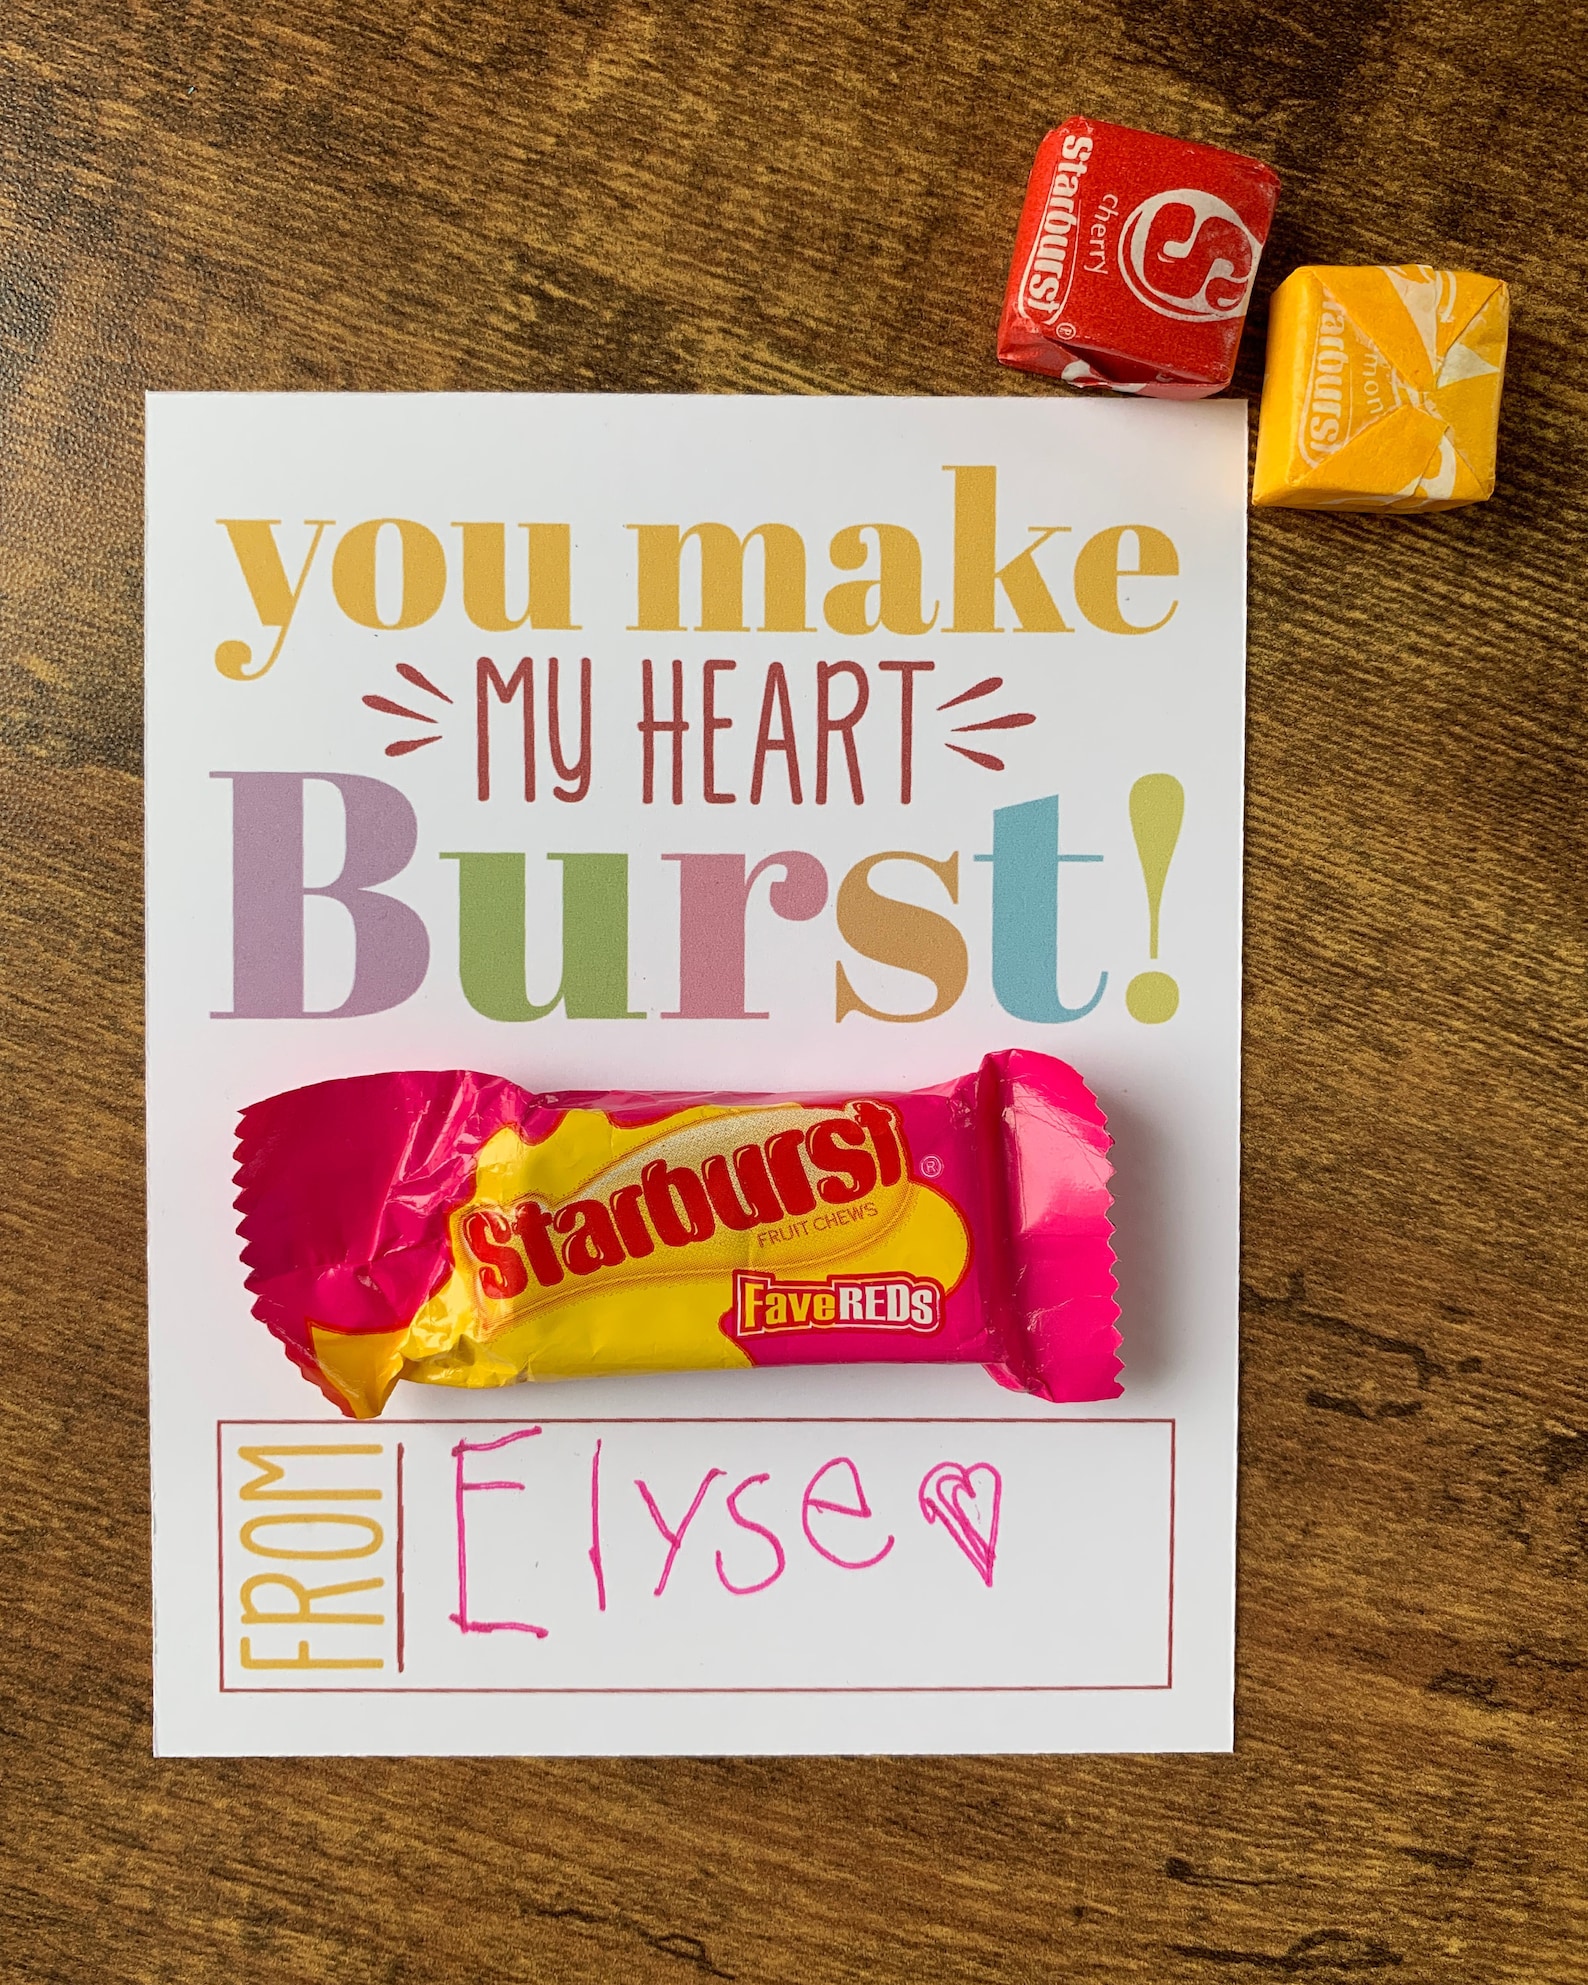 Starburst®
cherry
S
you make
MY HEART
Burst!
Starburst®
FRUIT CHEWS
FaveREDs
FROM
Elyse